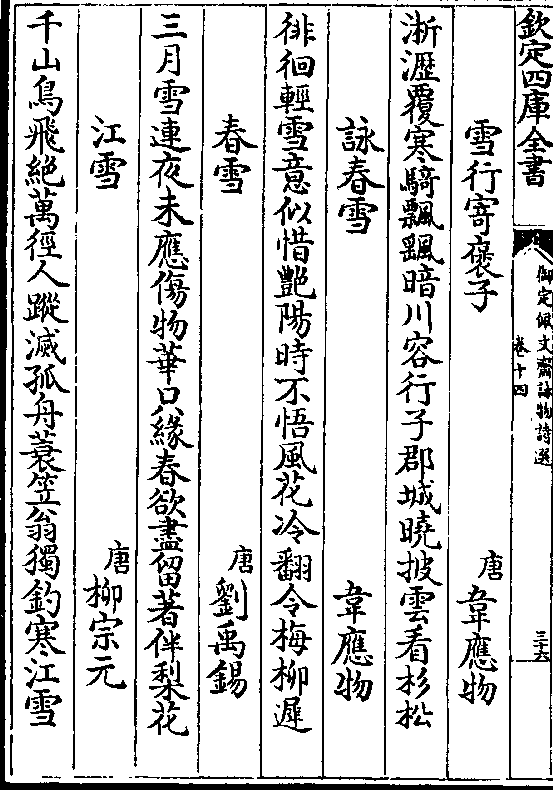 欽定四庫全書
御定佩文齋詠物詩選
卷十四
三十六
雪行寄褒子 唐 韋應物
淅瀝覆寒騎飄颻暗川容行子郡城曉披雲看杉松
詠春雪 韋應物
徘徊輕雪意似惜艷陽時不悟風花冷翻令梅柳遲
春雪 唐 劉禹錫
三月雪連夜未應傷物華只緣春欲盡留著伴梨花
江雪 唐 柳宗元
千山鳥飛絕萬徑人蹤滅孤舟蓑笠翁獨釣寒江雪